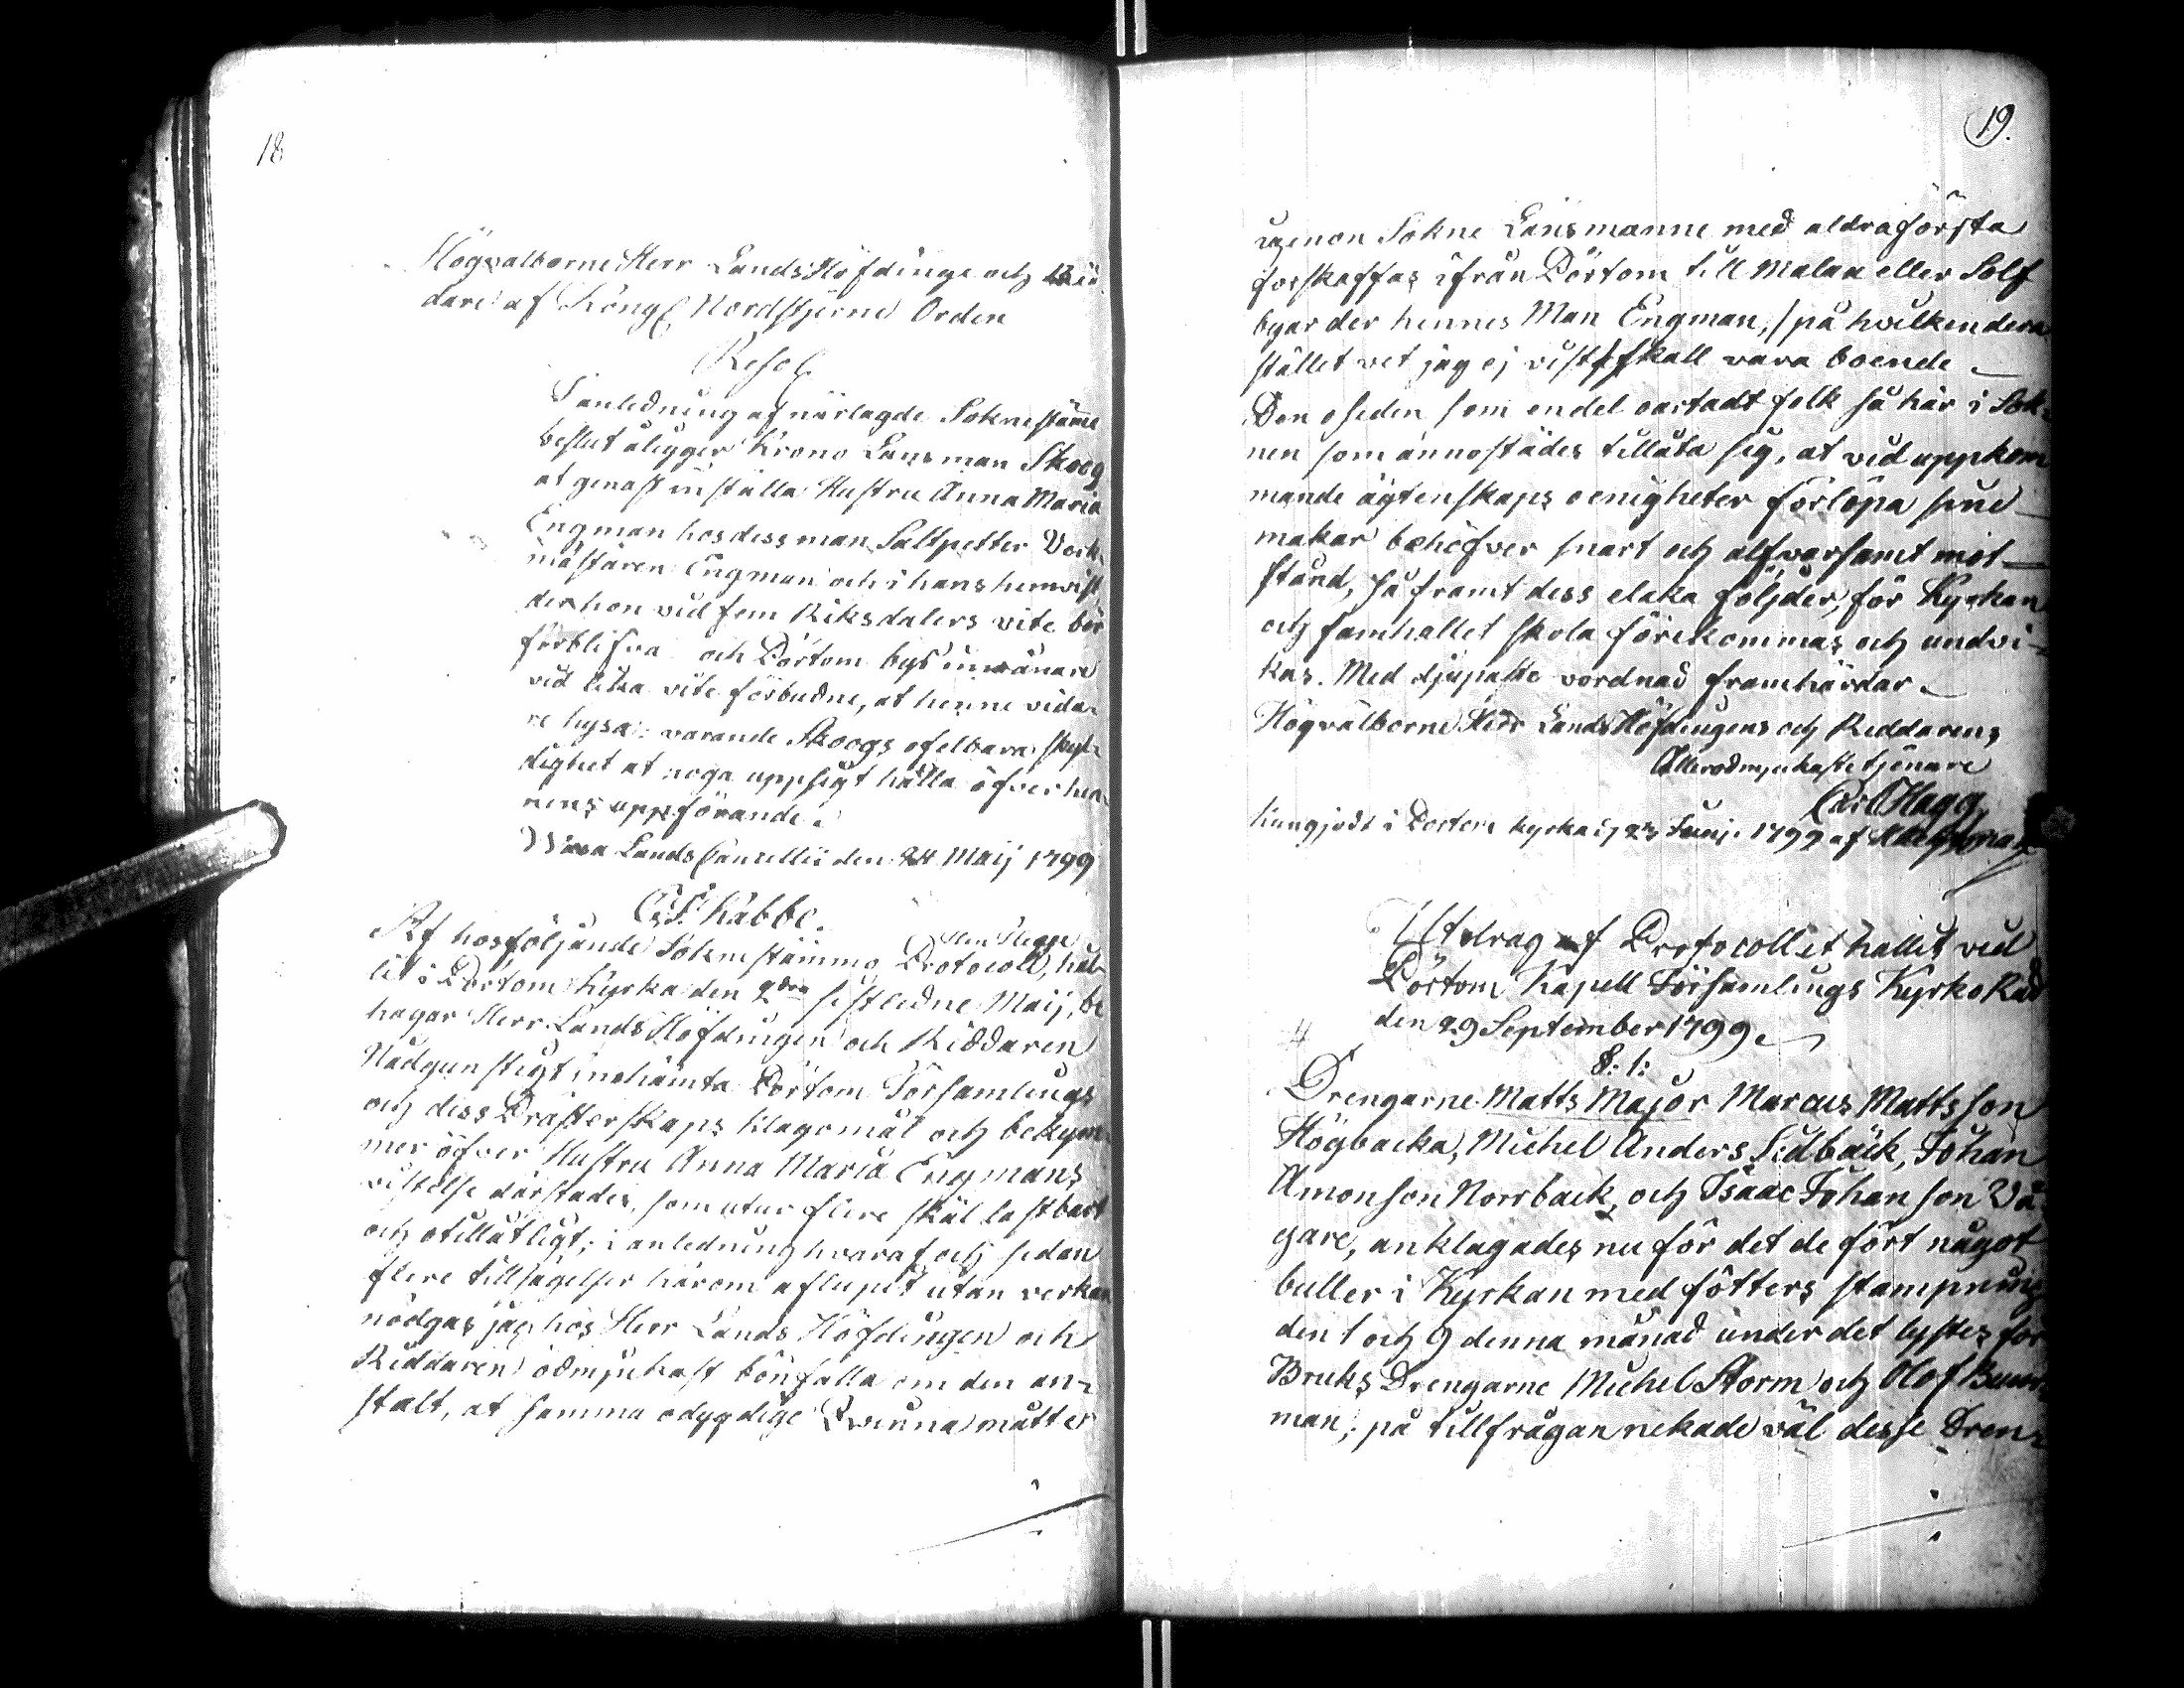 18
Högvalborne Herr Lands Höfdinge och Rid
dare af Kongl Nordstjerne Orden
Resol
I anledning af närlagde Sokne stäme
beslut åligger Krono Lansman Skoog
at genast inställa Hustru Anna Maria
Engman hos dess man Saltpetter Verk-
mästaren Engman och i hans hemvist,
der hon vid fem Riksdalers vite bör
förblifva och Pörtom bys innwånare
vid lika vite förbudne, at henne vida-
re hysa: varande Skoogs ofelbara skyl-
dighet at noga uppsigt hålla öfver hen-
nens uppförande.
Wasa Lands Cancellie den 24 Maij 1799
C. F. Kabbe.
Af hosföljande Soknestämmo Protocoll, hål-
lit i Portom Kyrka den 2dra sistledne Maij, be
hagar Herr Lands Höfdingen och Riddaren
Nådgunstigt inehämta Pörtom Församlings
och dess Prästerskaps klagomål och bekym-
mer öfver Hustru Anna Maria Engmans
vistelse därstädes, som utur flere skäl lastbart
och otillåtligt; i anledning hvaraf och sedan
flere tillsägelser härom aflupit utan verkan
nödgas jag hos Herr Lands Höfdingen och
Riddaren ödmjukast bönfalla om den an-
stalt, at samma odygdige Qvinna måtte
19.
genon Sokne Länsmanne med aldraförsta
forskaffas ifrån Pörtom till Malax eller Solf
byar der hennes Man Engman, /på hvilkendera
stället vet jag ej vist/ skall vara boende
Den oseden som endel oartadt folk så här i Sok-
nen som annostädes tillåta sig, at vid uppkom
mande ägtenskaps oenigheter förlöpa sine
makar behöfver snart och alfvarsamt mot-
stånd, så framt dess elaka följder, för Kyrkan
och samhallet skola förekommas och undvi-
kas. Med djupaste vördnad framhärdar
Högvälborne Herr Lands Höfdingens och Riddarens
Allerödmjukaste tjenare
Carl Hägg
Kungjodt i Portom kyrka 1799 af
Utdrag af Protocollet hållit vid
Pörtom Kapell Församlings Kyrko Råd
den 29 September 1799.
§. 1:
Drengarne Matts Major Marcus Mattsson
Högbacka, Michel Anders Sidbäck, Johan
Amonson Norrback, och Isaac Johan son Vä-
gare, anklagades nu för det de fört något
buller i Kyrkan med fötters stampning
den 1 och 9 denna månad under det lystes for
Bruks Drengarne Michel Storm och Olof
man; på tillfrågan nekade väl desse Dren-